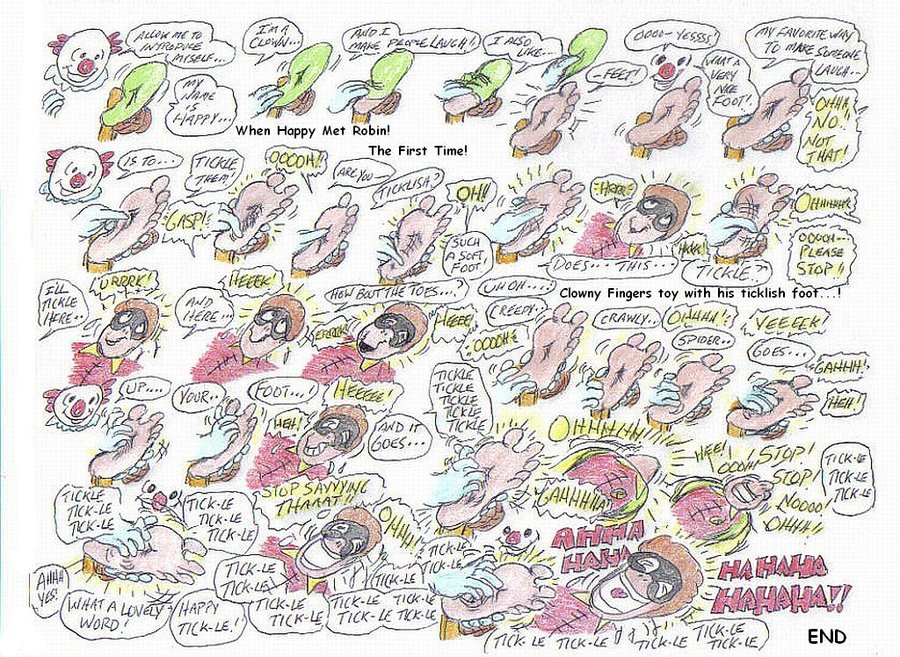 ALLOW ME TO
INTRODUCE
MYSELF...
MY
NAME
IS
HAPPY...
I'M A
CLOWN...
AND I
MAKE PEOPLE LAUGH!
I ALSO
LIKE...
-FEET!
OOOO-YESSSS!
WHAT A
VERY
NICE
FOOT!
MY FAVORITE WAY
TO MAKE SOMEONE
LAUGH...
OHHH
NO!!
NOT
THAT!
When Happy Met Robin!
The First Time!
IS TO...
GASP!
TICKLE
THEM!
OOOOH!
ARE YOU-
TICKLISH?
OH!!
SUCH
A SOFT
FOOT!
HRRR-
DOES...THIS...
HKKK!
TICKLE?
OHHHHHH
OOOOH---
PLEASE
STOP!!
I'LL
TICKLE
HERE...
URRRK!
AND
HERE...
HEEEK!
HOW BOUT THE TOES...?
HEEEE!
UHOH...
Clowny Fingers toy with his ticklish foot...!
CREEPY..
OOOOH!
CRAWLY...
OHHHH!
SPIDER...
YEEEEK!
GOES...
GAHHH!
HEH!
UP....
YOUR..
FOOT...!
HEEEEE!
HEH!
AND IT
GOES...
TICKLE
TICKLE
TICKLE
TICKLE
TICKLE
STOP SAYYYING
THAAAT!!
OHHH!
GAHHHHH
HEE!
OOOH!
STOP!
STOP!
NOOOO
OHHH!
TICK-LE
TICK-LE
TICK-LE
TICKLE
TICK-LE
TICK-LE
TICK-LE
TICK-LE
TICK-LE
AHHH
YES!
WHAT A LOVELY
WORD!
HAPPY
TICK-LE!
TICK-LE
TICK-LE
TICK-LE
TICK-LE
TICK-LE
TICK-LE
TICK-LE
TICK-LE
TICK-LE
TICK-LE
TICK-LE
AHHA
HAHA
HAHAHA
HAHAHA!!
TICK-LE TICK-LE TICK-LE
TICK-LE
TICK-LE
END